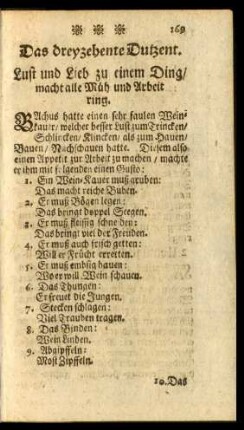 169
Das dreyzehente Dutzent.
Lust und Lieb zu einem Ding/
macht alle Müh und Arbeit
ring.
BAchus hatte einen sehr faulen Wein-
kauer/ welcher besser Lust zum Trincken/
Schlircken/ Klincken/ als zum Hauen/
Bauen/ Nachschauen hatte. Diesem also
einen Appetit zur Arbeit zu machen/ machte
er ihm mit folgenden einen Gusto:
1. Ein Wein-Kauer muß gruben:
Das macht reiche Buben.
2. Er muß Bögen legen:
Das bringt doppel Seegen.
3. Er muß fleissig schneyden:
Das bringt viel der Freuden.
4. Er muß auch frisch jetten:
Will er Frücht erretten.
5. Er muß embsig hauen:
Wo er will Wein schauen.
6. Das Thungen:
Erfreuet die Jungen.
7. Stecken schlagen:
Viel Trauben tragen.
8. Das Binden:
Wein Linden.
9. Abgipffeln:
Most Zipffeln.
10. Das